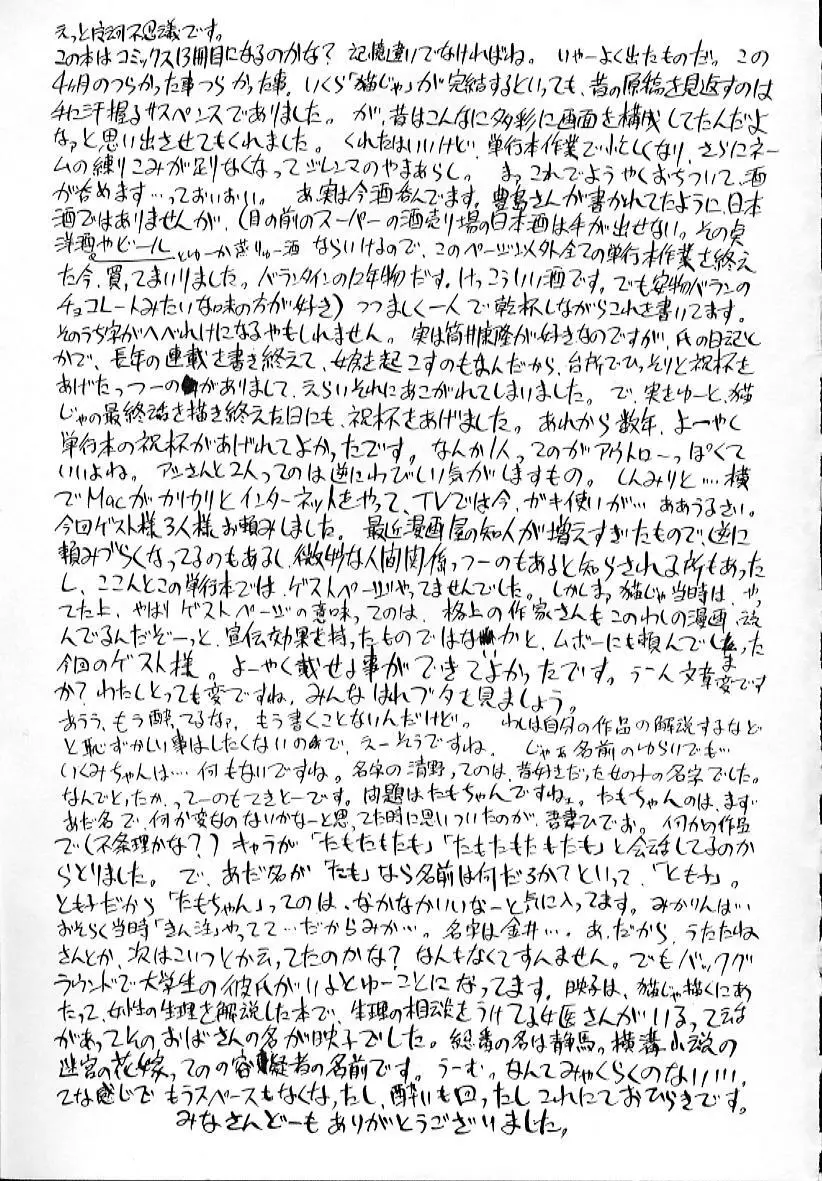 えっと定詞不思議です。
この本はコミックス13冊目になるのかな？ 記憶違いでなければね。 いやーよく出たものだ。 この
4ヶ月のつらかった事つらかった事。いくら「猫じゃ」が完結するといっても、昔の原稿を見返すのは
手に汗握るサスペンスでありました。 が、昔はこんなに多彩に画面を構成してたんだよ
なァと思い出させてもくれました。 くれたはいいけど、単行本作業で忙しくなり、さらにネー
ムの練りこみが足りなくなってジレンマのやまあらし。 まっこれでようやくおちついて、酒
が呑めます…っておいおい。 あ、実は今酒呑んでます。豊島さんが書かれてたように、日本
酒ではありませんが、(目の前のスーパーの酒売り場の日本酒は手が出せない。その点
洋酒やビールとゆーか蒸りゅー酒ならいけるので、このページ以外全ての単行本作業を終え
た今、買ってまいりました。バランタインの12年物だす。けっこういい酒です。でも安物バランの
チョコレートみたいな味の方が好き) つつましく一人で乾杯しながらこれを書いてます。
そのうち字がへべれけになるやもしれません。 実は筒井康隆が好きなのですが、氏の日記と
かで、長年の連載を書き終えて、女房を起こすのもなんだから、台所でひっそりと祝杯を
あげたっつーのがありまして、えらいそれにあこがれてしまいました。 で、実をゆーと、猫
じゃの最終話を描き終えた日にも、祝杯をあげました。 あれから数年、よーやく
単行本の祝杯があげれてよかったです。 なんか1人ってのがアウトローっぽくて
いいよね。 アシさんと2人ってのは逆にわびしい気がしますもの。 しんみりと…。横
でMacがカリカリとインターネットをやって、TVでは今、ガキ使いが… ああうるさい。
今回ゲスト様3人様、お頼みしました。 最近漫画屋の知人が増えすぎたもので、逆に
頼みづらくなってるのもあるし、微妙な人間関係っつーのもあると知らされる所もあった
し、ここんとこの単行本では、ゲストページやってませんでした。しかしまっ猫じゃ当時は、やっ
てた上、やはりゲストページの意味ってのは、格上の作家さんもこのわしの漫画、読
んでるんだぞーっと、宣伝効果を持ったものではないかと、ムボーにも頼んでしまった
今回のゲスト様。 よーやく載せる事ができてよかったです。 うーん文章変です
か？わたしとっても変ですね、みんなはれブタを見ましょう。
あうう、もう酔ってるなァ、もう書くことないんだけど。 わしは自分の作品の解説するなど
と恥ずかしい事はしたくないので、えーそうですね。 じゃぁ名前のゆらいでも…
いくみちゃんは… 何もないですね。名字の清野ってのは、昔好きだった女の子の名字でした。
なんでとったか、ってーのもてきとーです。問題はたもちゃんですねェ。 たもちゃんのは、まず
あだ名で、何か変なのないかなーと思ってた時に思いついたのが、吾妻ひでお。 何かの作品
で(不条理かな？) キャラが「たもたもたも」「たもたもたもたも」と会話してるのか
らとりました。 で、あだ名が「たも」なら名前は何だろかてといって、「とも子」。
とも子だから「たもちゃん」ってのは、なかなかいいなーと気に入ってます。 みかりんは…
おそらく当時「きん注」やってて…だからみか…。 名字は金井…。 あ、だから、うたたね
さんとか、次はこいつとか云ってたのかな？ なんもなくてすんません。 でもバックグ
ラウンドで大学生の彼氏がいるとゆーことになってます。 映子は、猫じゃ描くにあ
たって、女性の生理を解説した本で、生理の相談をうけてる女医さんがいるって話
があってそのおばさんの名が映子でした。 総番の名は静馬っ。横溝小説の
迷宮の花嫁ってのの容疑者の名前です。 うーむっなんてみゃくらくのない!!!
てな感じで もうスペースもなくなったし、酔いも回ったし これにておひらきです。
みなさんどーも ありがとうございました。